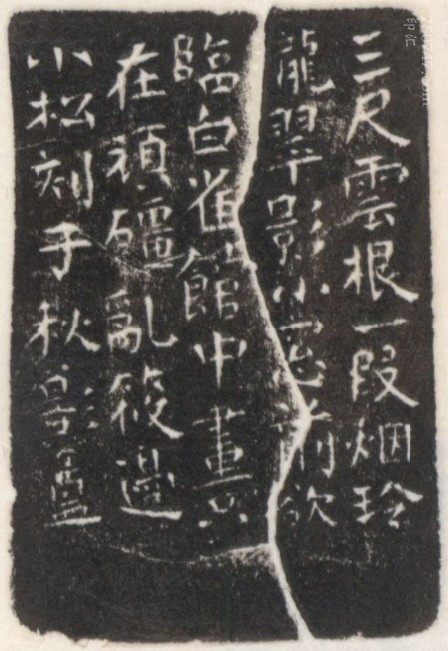 三尺雲根一段烟玲
瓏翠影小窓前欲
臨白雀館中畫只
在頑礓亂筱邊
小松刻于秋影盦